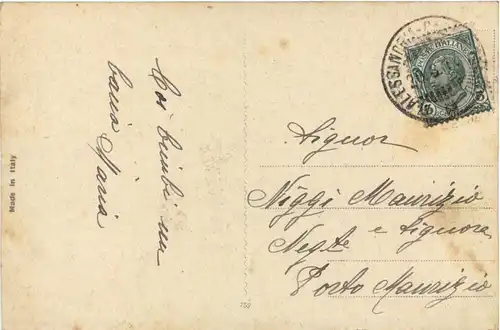 Coi bimbi un
bacio Maria
Made in Italy
702
ALESSANDRIA
POSTE ITALIANE
Signor
Niggi Maurizio
e Signora
Negte
Porto Maurizio